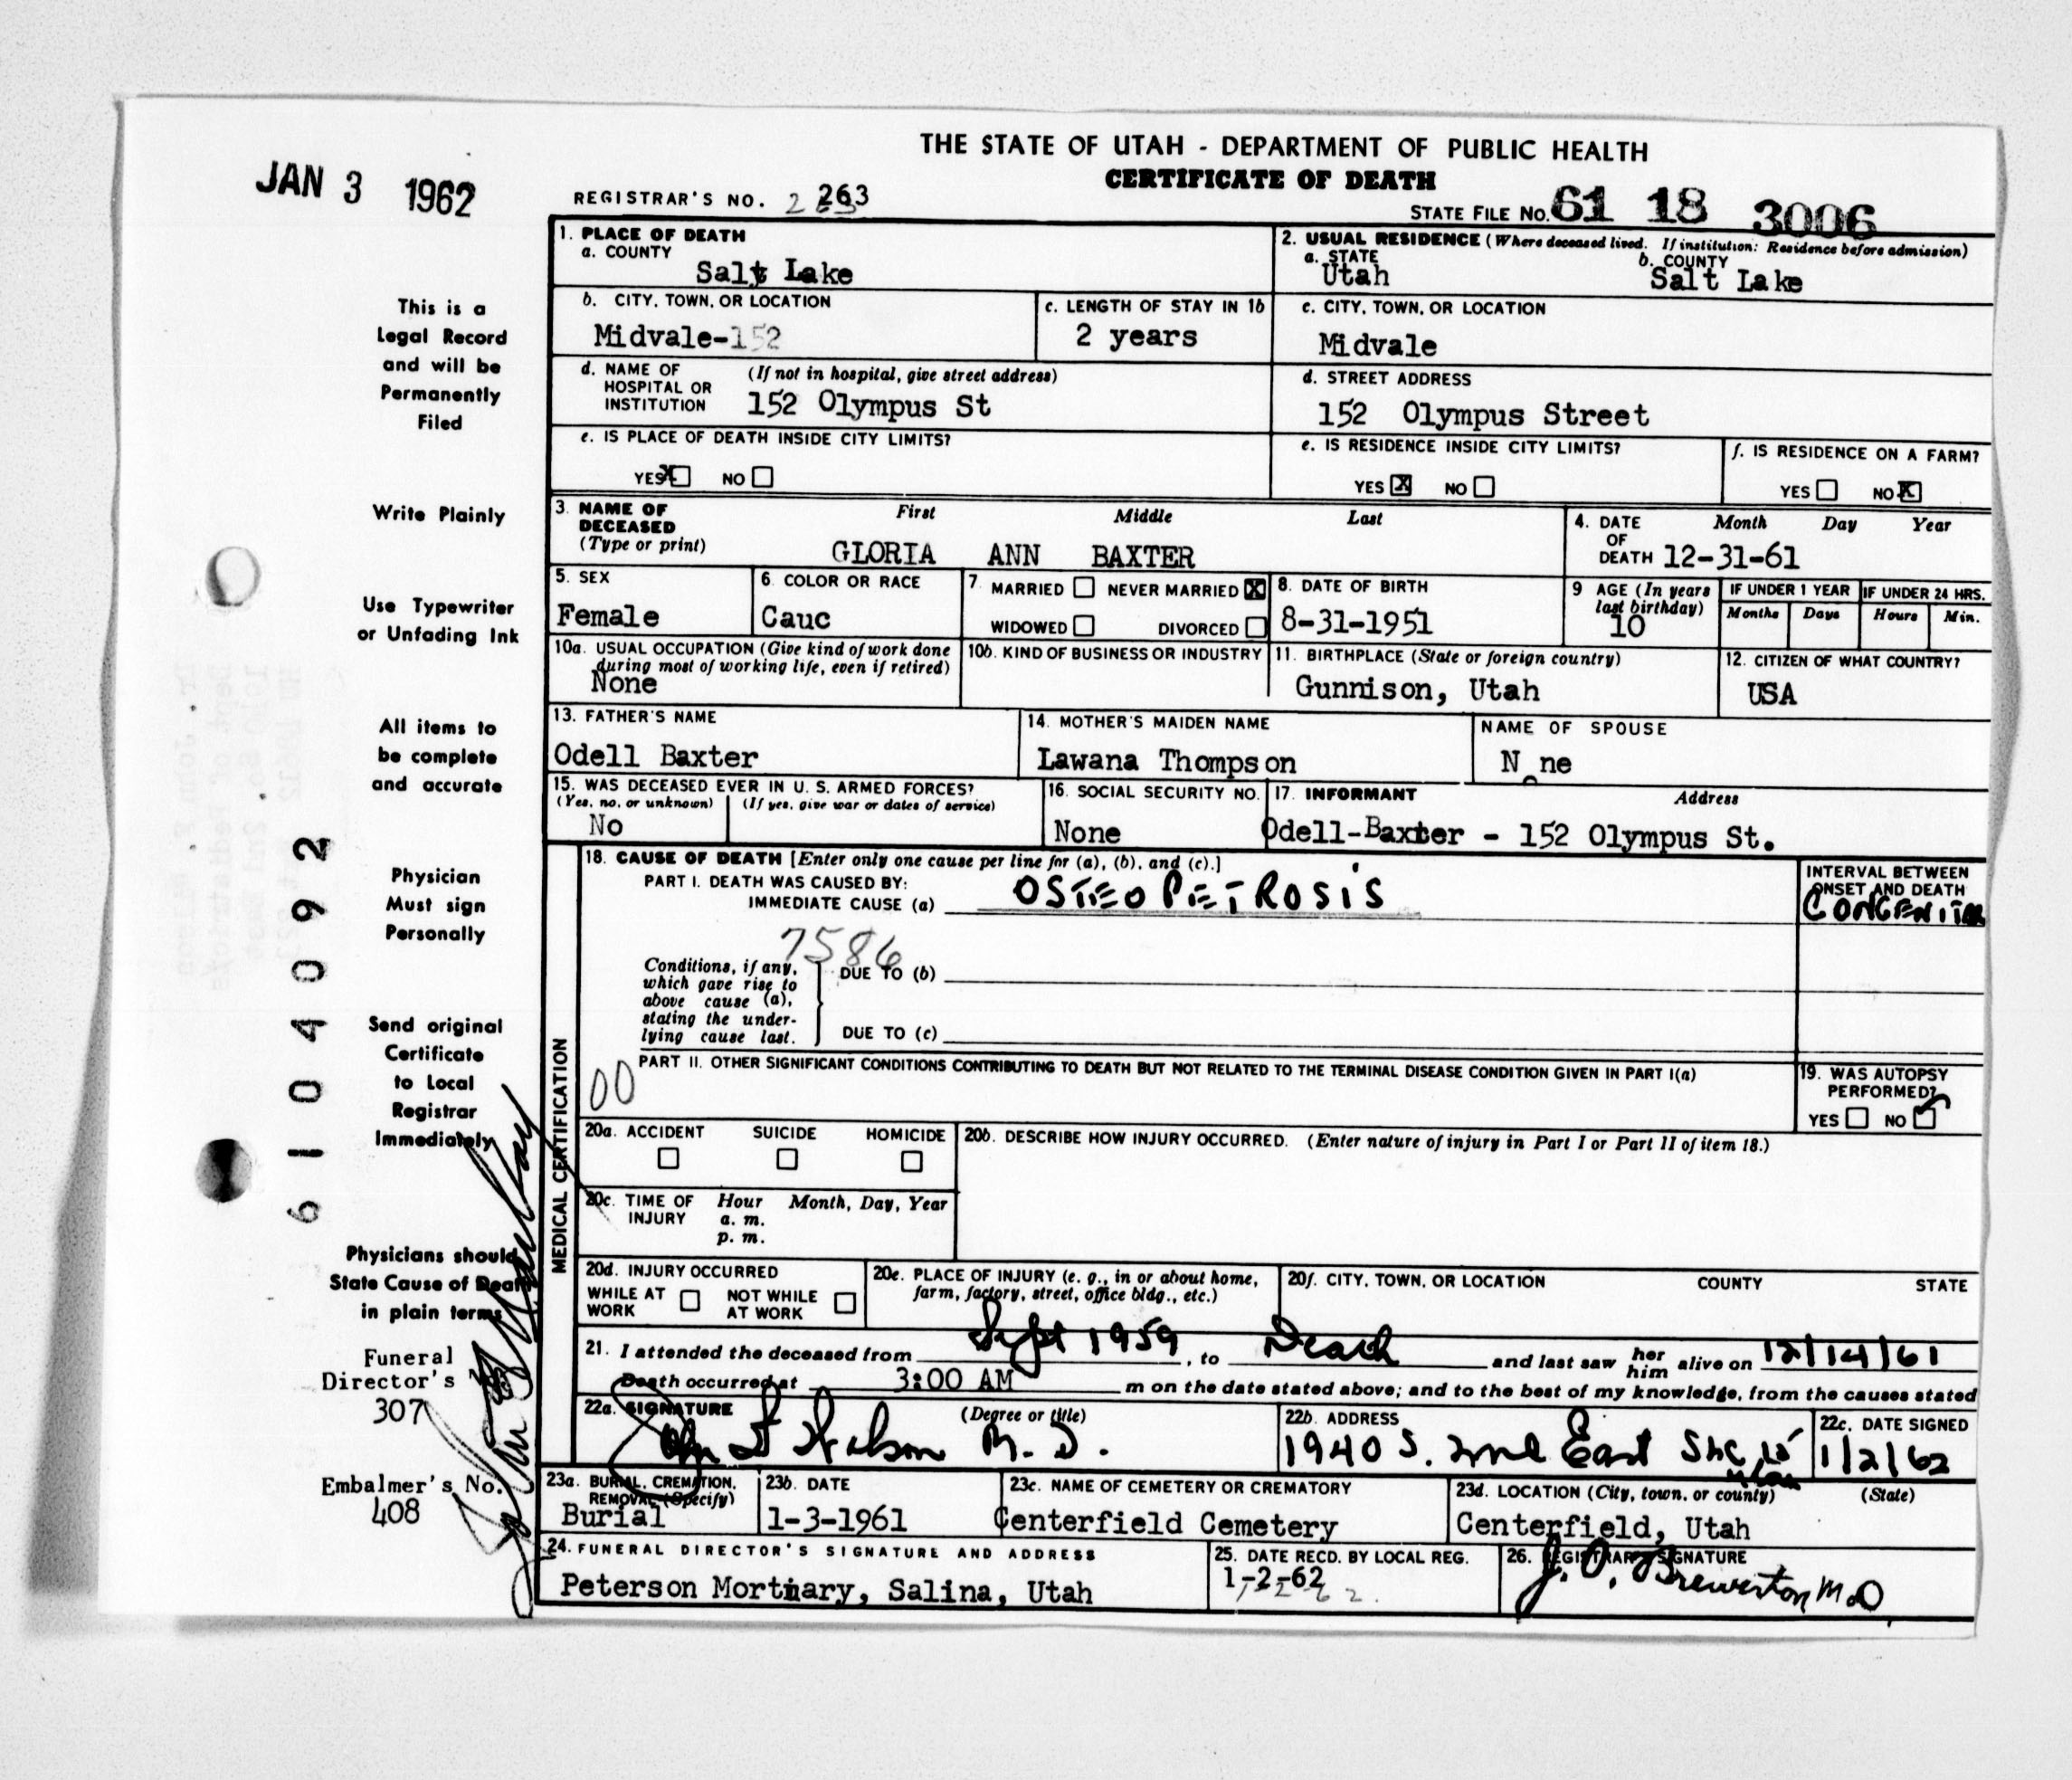 THE STATE OF UTAH - DEPARTMENT OF PUBLIC HEALTH
CERTIFICATE OF DEATH
JAN 3 1962
REGISTRAR'S NO. 263
STATE FILE NO. 61 18 3006
1. PLACE OF DEATH
a. COUNTY
Salt Lake
2. USUAL RESIDENCE (Where deceased lived. If institution: Residence before admission)
a. STATE
Utah
b. COUNTY
Salt Lake
b. CITY, TOWN, OR LOCATION
Midvale-152
c. LENGTH OF STAY IN 1b
2 years
c. CITY, TOWN, OR LOCATION
Midvale
d. NAME OF HOSPITAL OR INSTITUTION
(If not in hospital, give street address)
152 Olympus St
d. STREET ADDRESS
152 Olympus Street
e. IS PLACE OF DEATH INSIDE CITY LIMITS?
YES X NO
e. IS RESIDENCE INSIDE CITY LIMITS?
YES X NO
f. IS RESIDENCE ON A FARM?
YES NO X
3. NAME OF DECEASED (Type or print)
First Middle Last
GLORIA ANN BAXTER
4. DATE OF DEATH
Month Day Year
12-31-61
5. SEX
Female
6. COLOR OR RACE
Cauc
7. MARRIED NEVER MARRIED X
WIDOWED DIVORCED
8. DATE OF BIRTH
8-31-1951
9 AGE (In years last birthday)
10
IF UNDER 1 YEAR
Months Days
IF UNDER 24 HRS.
Hours Min.
10a. USUAL OCCUPATION (Give kind of work done during most of working life, even if retired)
None
10b. KIND OF BUSINESS OR INDUSTRY
11. BIRTHPLACE (State or foreign country)
Gunnison, Utah
12. CITIZEN OF WHAT COUNTRY?
USA
13. FATHER'S NAME
Odell Baxter
14. MOTHER'S MAIDEN NAME
Lawana Thompson
NAME OF SPOUSE
None
15. WAS DECEASED EVER IN U. S. ARMED FORCES?
(Yes, no, or unknown) (If yes, give war or dates of service)
No
16. SOCIAL SECURITY NO.
None
17. INFORMANT Address
Odell-Baxter - 152 Olympus St.
MEDICAL CERTIFICATION
18. CAUSE OF DEATH [Enter only one cause per line for (a), (b), and (c).]
PART I. DEATH WAS CAUSED BY:
IMMEDIATE CAUSE (a) OSTEOPETROSIS
INTERVAL BETWEEN ONSET AND DEATH
CONGENITAL
7586
Conditions, if any, which gave rise to above cause (a), stating the underlying cause last.
DUE TO (b)
DUE TO (c)
PART II. OTHER SIGNIFICANT CONDITIONS CONTRIBUTING TO DEATH BUT NOT RELATED TO THE TERMINAL DISEASE CONDITION GIVEN IN PART I(a)
00
19. WAS AUTOPSY PERFORMED?
YES NO ✓
20a. ACCIDENT SUICIDE HOMICIDE
20b. DESCRIBE HOW INJURY OCCURRED. (Enter nature of injury in Part I or Part II of item 18.)
20c. TIME OF INJURY
Hour Month, Day, Year
a. m.
p. m.
20d. INJURY OCCURRED
WHILE AT WORK NOT WHILE AT WORK
20e. PLACE OF INJURY (e. g., in or about home, farm, factory, street, office bldg., etc.)
20f. CITY, TOWN, OR LOCATION COUNTY STATE
21. I attended the deceased from Sept 1959, to Death and last saw her him alive on 12/14/61
Death occurred at 3:00 AM m on the date stated above; and to the best of my knowledge, from the causes stated
22a. SIGNATURE (Degree or title)
M. D.
22b. ADDRESS
1940 S. 2nd East SLC 15 Utah
22c. DATE SIGNED
1/2/62
23a. BURIAL, CREMATION, REMOVAL (Specify)
Burial
23b. DATE
1-3-1961
23c. NAME OF CEMETERY OR CREMATORY
Centerfield Cemetery
23d. LOCATION (City, town, or county) (State)
Centerfield, Utah
24. FUNERAL DIRECTOR'S SIGNATURE AND ADDRESS
Peterson Mortuary, Salina, Utah
25. DATE RECD. BY LOCAL REG.
1-2-62
26. REGISTRAR'S SIGNATURE
J. O. Brewerton M.D
This is a
Legal Record
and will be
Permanently
Filed
Write Plainly
Use Typewriter
or Unfading Ink
All items to
be complete
and accurate
Physician
Must sign
Personally
Send original
Certificate
to Local
Registrar
Immediately
Physicians should
State Cause of Death
in plain terms
Funeral
Director's
307
Embalmer's No.
408
6104092